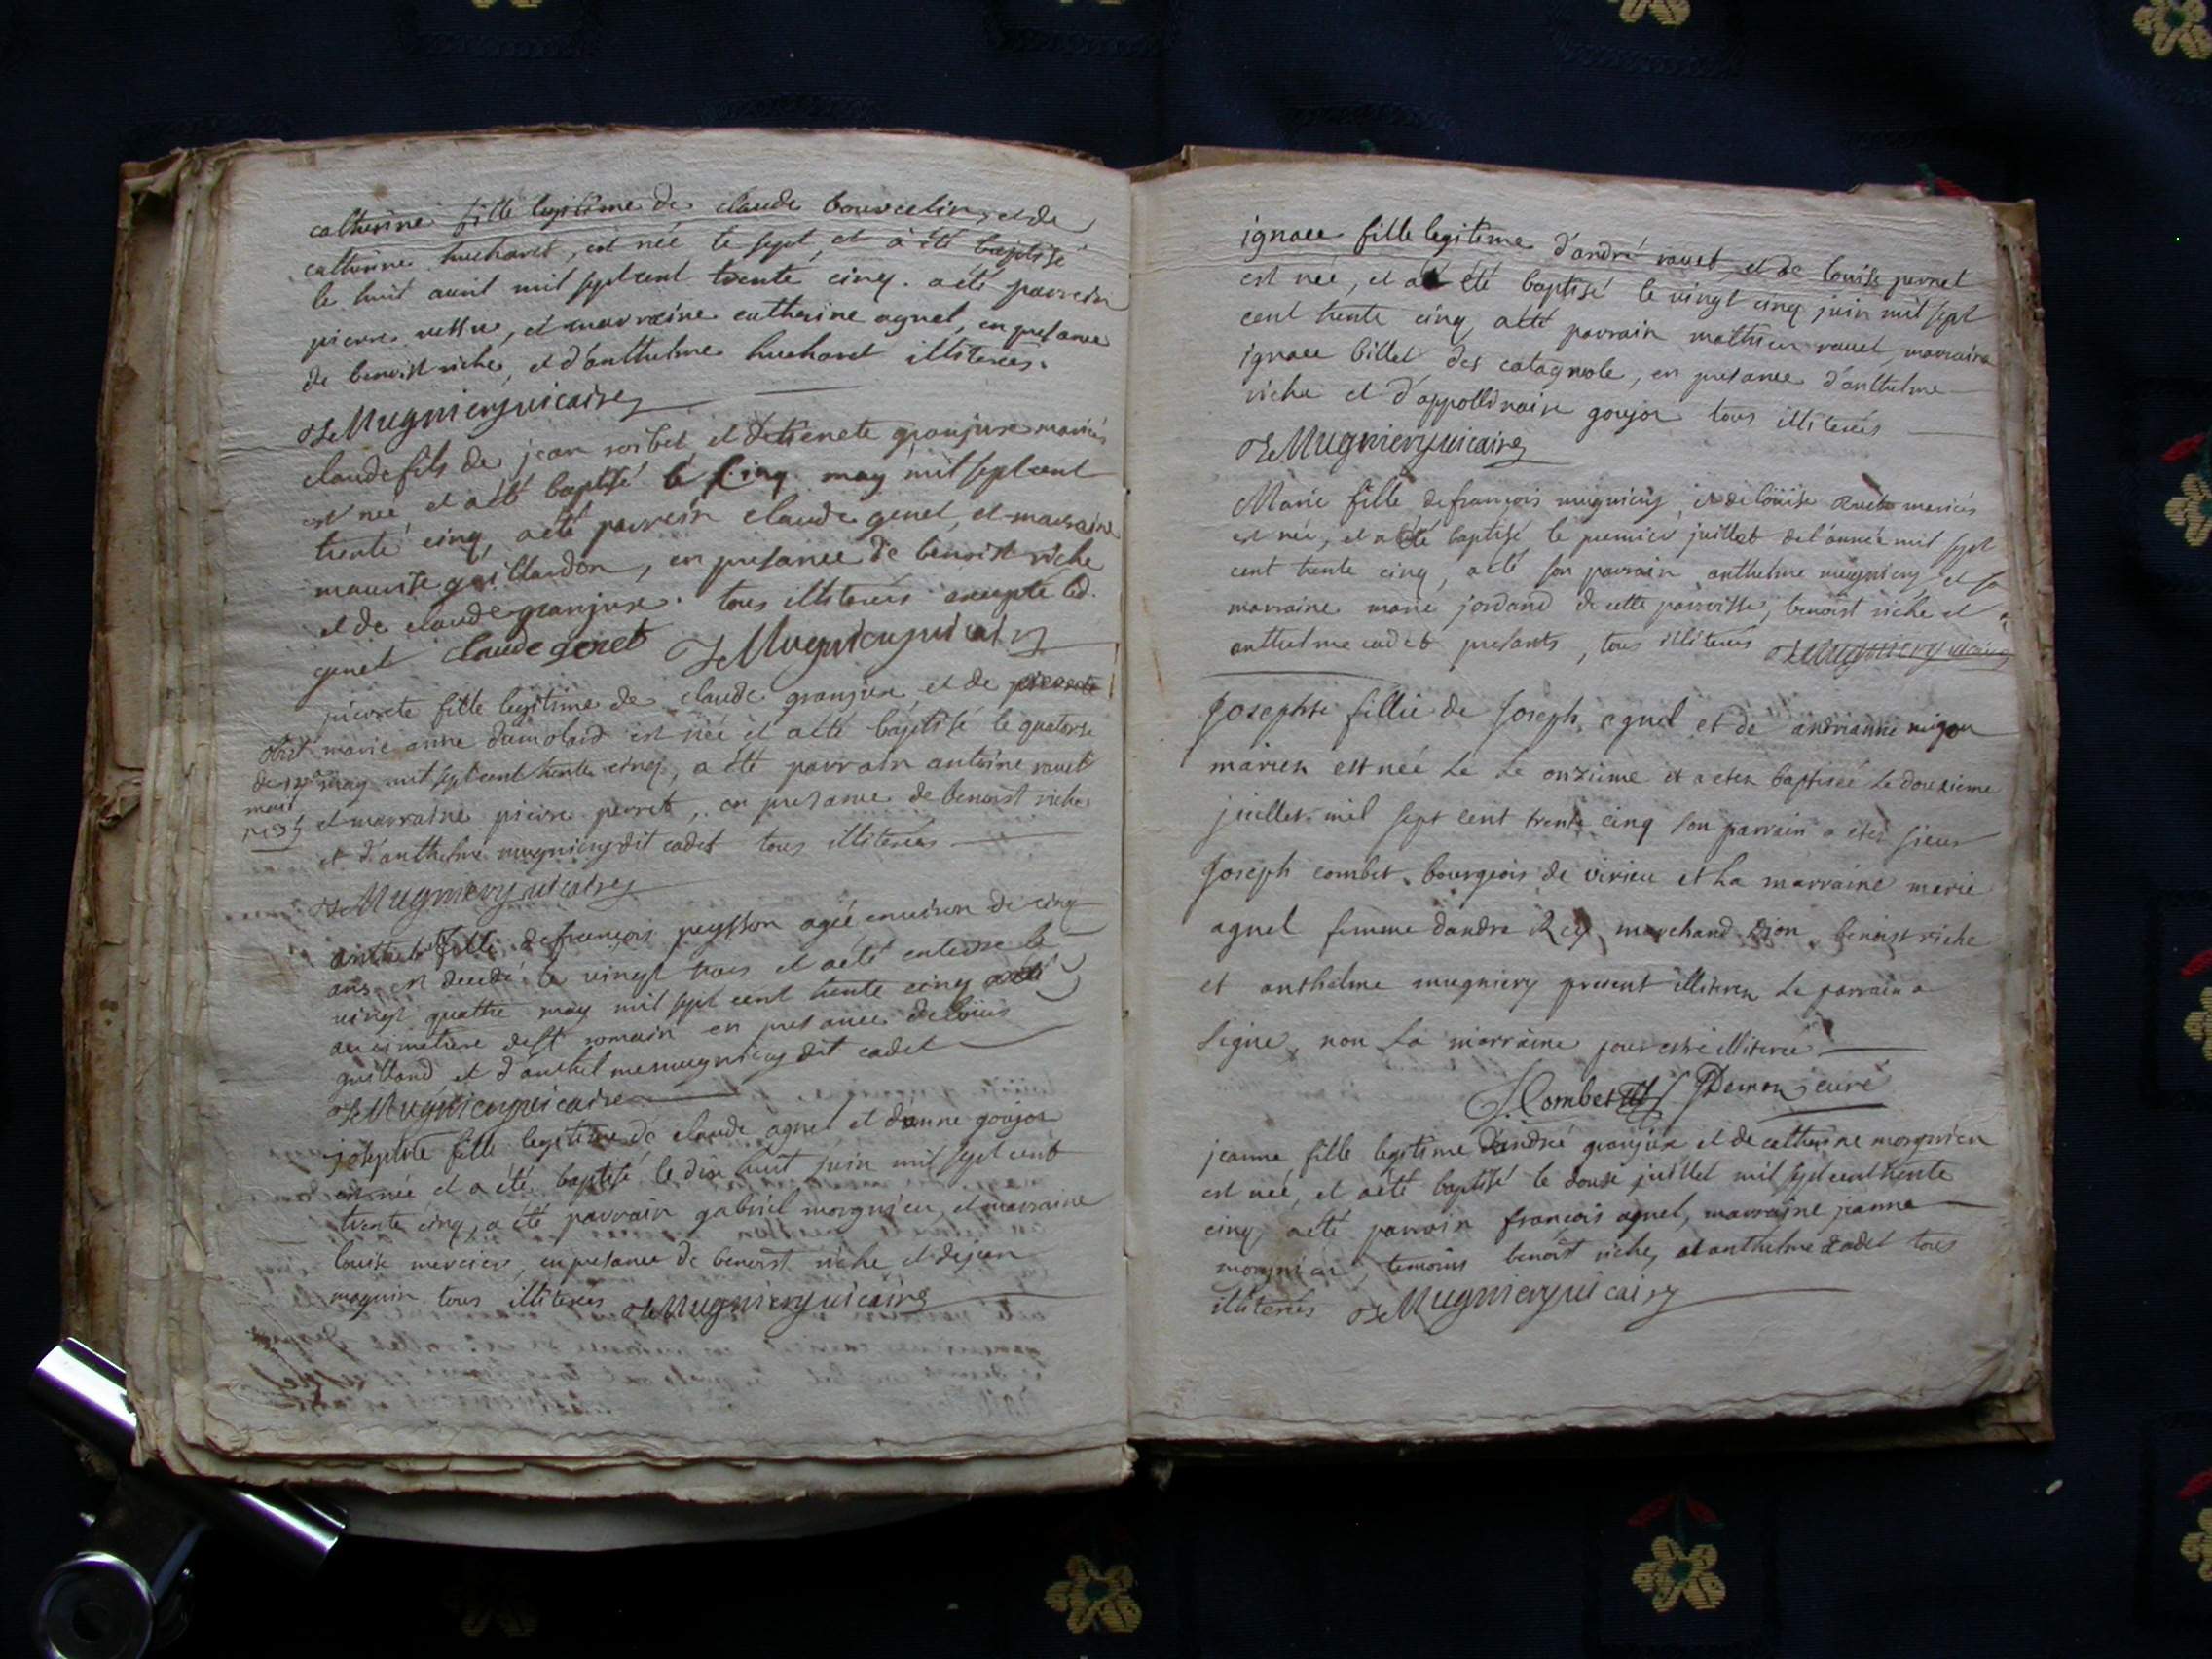 catherine fille legitime de claude bourcelin, et de
catherine huchard, est née le sept, et à été baptisé
le huit avril mil sept cent trente cinq. a été parrein
pierre, et marreine catherine agnel, en presance
de benoist riche, et d'anthelme huchard illiterés.
Mugniery vicaire
claude fils de jean sorbet, et de granjux mariés
est né et a été baptisé le cinq may mil sept cent
trente cinq, a été parrein claude genet, et marraine
gaillardon, en presance de benoist riche
et de claude granjux. tous illiterés excepté led.
genet claude genet Mugniery vicaire
pierrete fille legitime de claude granjux et de
marie anne dumolard est née et a été baptisé le quatorse
may mil sept cent trente cinq, a été parrain antoine ravet
et marraine pierre perret, en presance de benoist riche
et d'anthelme mugniery dit cadet tous illiterés
Mugniery vicaire
fille de françois peysson agée environ de cinq
ans est decedé le vingt trois et a été enterré le
vingt quatre may mil sept cent trente cinq
au cimetiere de st romain en presance de loüis
guilland et d'anthelme mugniery dit cadet
Mugniery vicaire
josephte fille legitime de claude agnel et d'anne goujor
est née et a été baptisé le dix huit juin mil sept cent
trente cinq, a été parrain gabriel morgnieu, et marraine
louise mercier, en presance de benoist riche et de jean
magnin tous illiterés Mugniery vicaire
ignace fille legitime d'andré ravet, et de louise perret
est née, et a été baptisé le vingt cinq juin mil sept
cent trente cinq, a été parrain mathieu ravet, marraine
ignace billet des catagnole, en presance d'anthelme
riche et d'appollinaire goujor tous illiterés
Mugniery vicaire
Marie fille de françois mugniery, et de loüise mariés
est née, et a été baptisé, le premier juillet de l'année mil sept
cent trente cinq, a été son parrain anthelme mugniery et sa
marraine marie jordand de cette parroisse, benoist riche et
anthelme cadet presants, tous illiterés Mugniery vicaire
Josephte fillie de Joseph agnel et de andrianne migon
maries est née Le Le onzieme et a eter baptiseé Le douzieme
juillet mil sept cent trente cinq son parrain a eter sieur
Joseph combet bourgeois de virieu et La marraine marie
agnel femme dandre Rey marchand benoist riche
et anthelme mugniery present illiteres Le parrain a
signe, non La marraine pour estre illiterée
J. Combet Demon curé
jeanne fille legitime d'andré granjux et de catherine morgnieu
est née, et a été baptisé le douse juillet mil sept cent trente
cinq a été parrain françois agnel, marraine jeanne
morgnieu, temoins benoist riche, et anthelme cadet tous
illiterés Mugniery vicaire